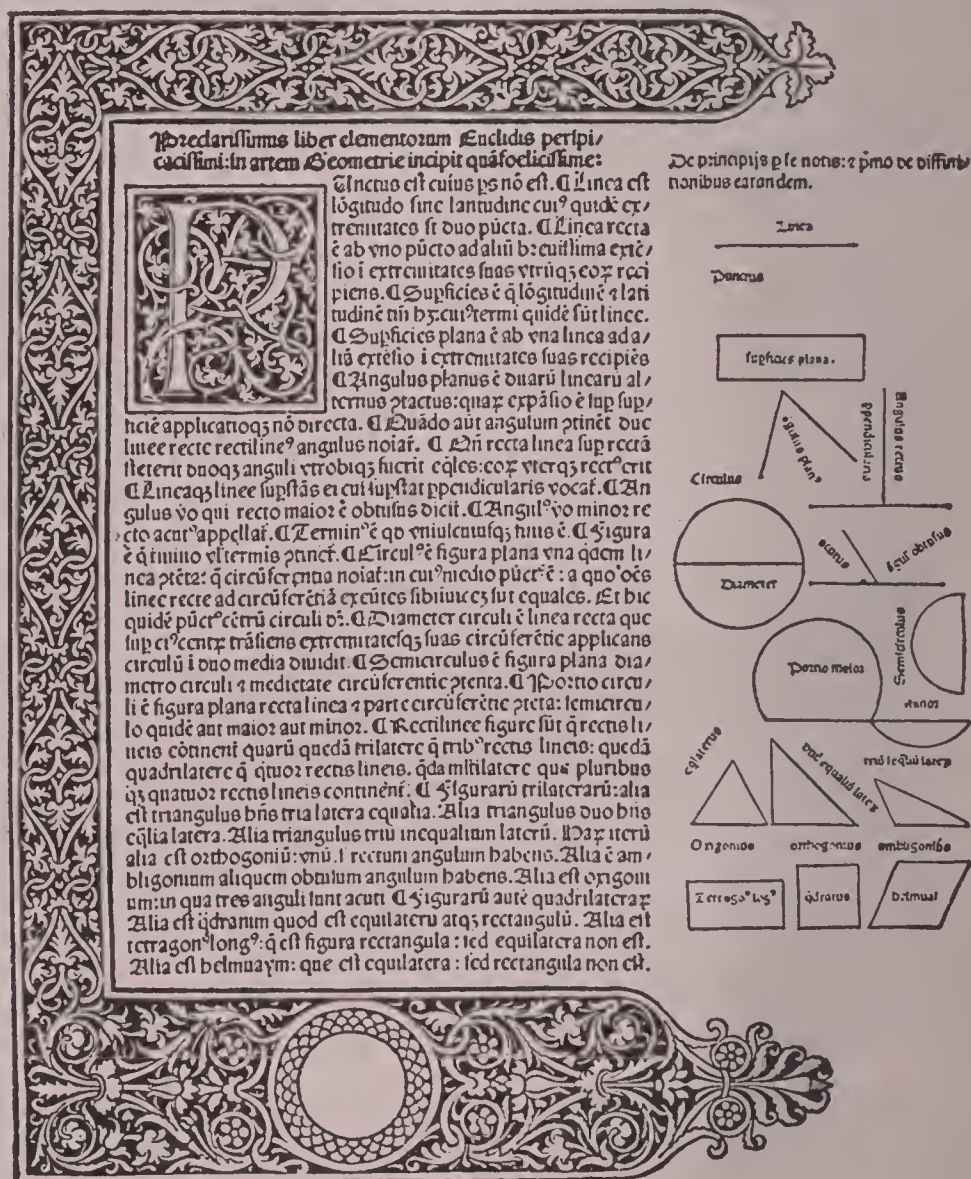 Preclarissimus liber elementorum Euclidis perspi/
cacissimi: in artem Geometrie incipit quāfoelicissime:
PUnctus est cuius ps nō est. ¶ Linea est
lōgitudo sine latitudine cuiꝰ quidē ex/
tremitates st duo pūcta. ¶ Linea recta
ē ab vno pūcto ad aliū breuissima extē/
sio ī extremitates suas vtrūqꝫ eoꝝ reci
piens. ¶ Supficies ē q̄ lōgitudinē ⁊ lati
tudinē tm̄ hꝫ: cuiꝰ termi quidē sūt linee.
¶ Supficies plana ē ab vna linea ad a/
liā extēsio ī extremitates suas recipiēs
¶ Angulus planus ē duarū linearū al/
ternus ꝯtactus: quaꝝ expāsio ē sup sup/
ficiē applicatioqꝫ nō directa. ¶ Quādo aūt angulum ꝯtinēt due
linee recte rectilineꝰ angulus noiat̄. ¶ Qn̄ recta linea sup rectā
steterit duoqꝫ anguli vtrobiqꝫ fuerit eq̄les: eoꝝ vterqꝫ rectꝰ erit
¶ Lineaqꝫ linee supstās ei cui supstat ppendicularis vocat̄. ¶ An
gulus vo qui recto maior ē obtusus dicit̄. ¶ Angulꝰ vo minor re
cto acutꝰ appellat̄. ¶ Terminꝰ ē qd vniuscuiusqꝫ finis ē. ¶ Figura
ē q̄ tmino vl termis ꝯtinet̄. ¶ Circulꝰ ē figura plana vna qdem li/
nea ꝯtēta: q̄ circūferentia noiat̄: in cuiꝰ medio pūctꝰ ē: a quo oēs
linee recte ad circūferētiā exeūtes sibiiuicē sūt equales. Et hic
quidē pūctꝰ cētrū circuli dr̄. ¶ Diameter circuli ē linea recta que
sup eiꝰ centꝝ trāsiens extremitatesqꝫ suas circūferētie applicans
circulū ī duo media diuidit. ¶ Semicirculus ē figura plana dia/
metro circuli ⁊ medietate circūferentie ꝯtenta. ¶ Portio circu/
li ē figura plana recta linea ⁊ parte circūferētie ꝯtēta: semicircu/
lo quidē aut maior aut minor. ¶ Rectilinee figure sūt q̄ rectis li/
neis cōtinent̄ quarū quedā trilatere q̄ tribꝰ rectis lineis: quedā
quadrilatere q̄ qtuor rectis lineis. qda mltilatere que pluribus
qꝫ quatuor rectis lineis continent̄. ¶ Figurarū trilaterarū: alia
est triangulus hn̄s tria latera equalia. Alia triangulus duo hn̄s
eq̄lia latera. Alia triangulus triū inequalium laterū. Haꝝ iterū
alia est orthogoniū: vnū .ī. rectum angulum habens. Alia ē am/
bligonium aliquem obtusum angulum habens. Alia est oxigoni
um: in qua tres anguli sunt acuti. ¶ Figurarū autē quadrilateraꝝ
Alia est q̄dratum quod est equilaterū atqꝫ rectangulū. Alia est
tetragonꝰ longꝰ: q̄ est figura rectangula: sed equilatera non est.
Alia est helmuaym: que est equilatera: sed rectangula non est.
De principijs p se notis: ⁊ pmo de diffini/
tionibus earundem.
Linea
Punctus
supficies plana.
āgulus planꝰ
ppendicularis
Angulus rectus
Circulus
Diameter
acutus
āgulꝰ obtusus
Semicirculus
Portio maior
minor
eqlaterus
duū equaliū lateꝝ
triū īeq̄liū lateꝝ
Oxigonius
orthogonius
ambligonius
Tetragoꝰ logꝰ
q̄dratus
helmuaī